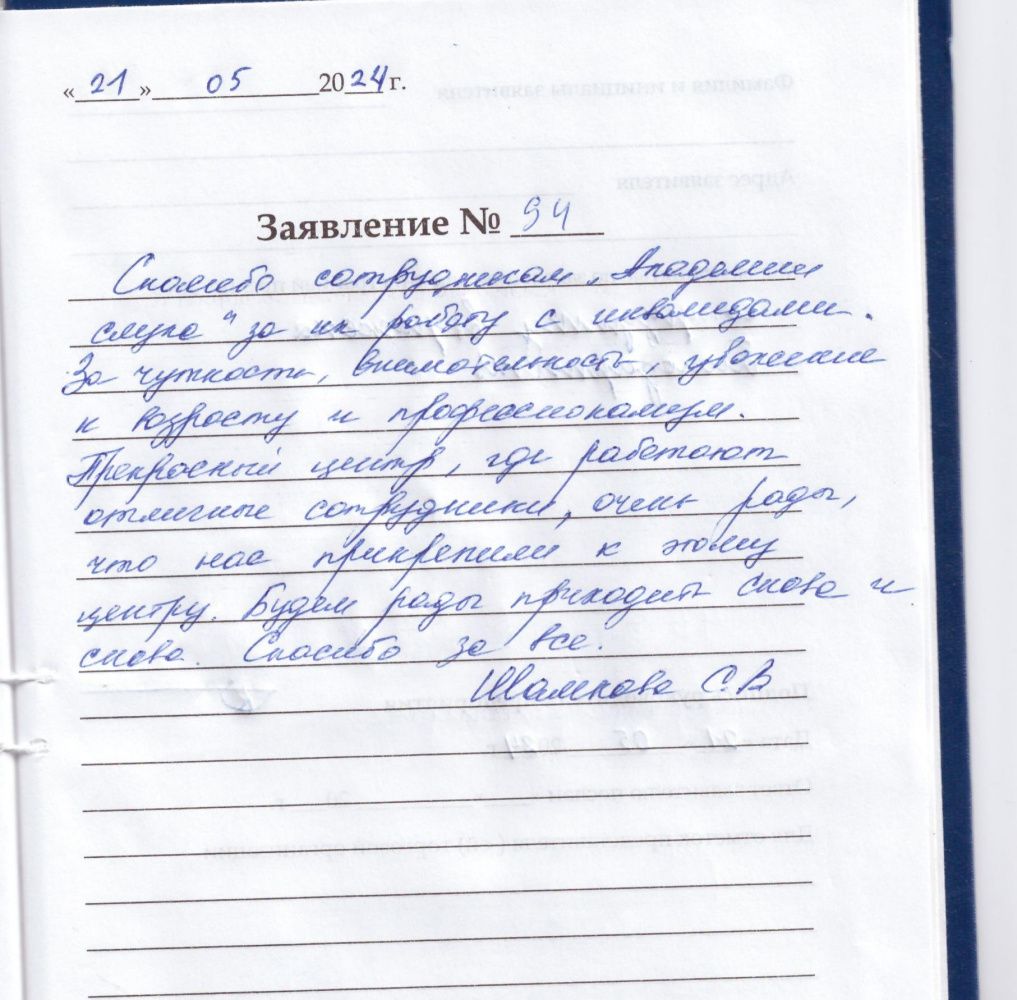 «21» 05 2024 г.
Заявление № 94
Спасибо сотрудникам „Академии
слуха" за их работу с инвалидами.
За чуткость, внимательность, уважение
к возрасту и профессионализм.
Прекрасный центр, где работают
отличные сотрудники, очень рады,
что нас прикрепили к этому
центру. Будем рады приходить снова и
снова. Спасибо за все.
С В